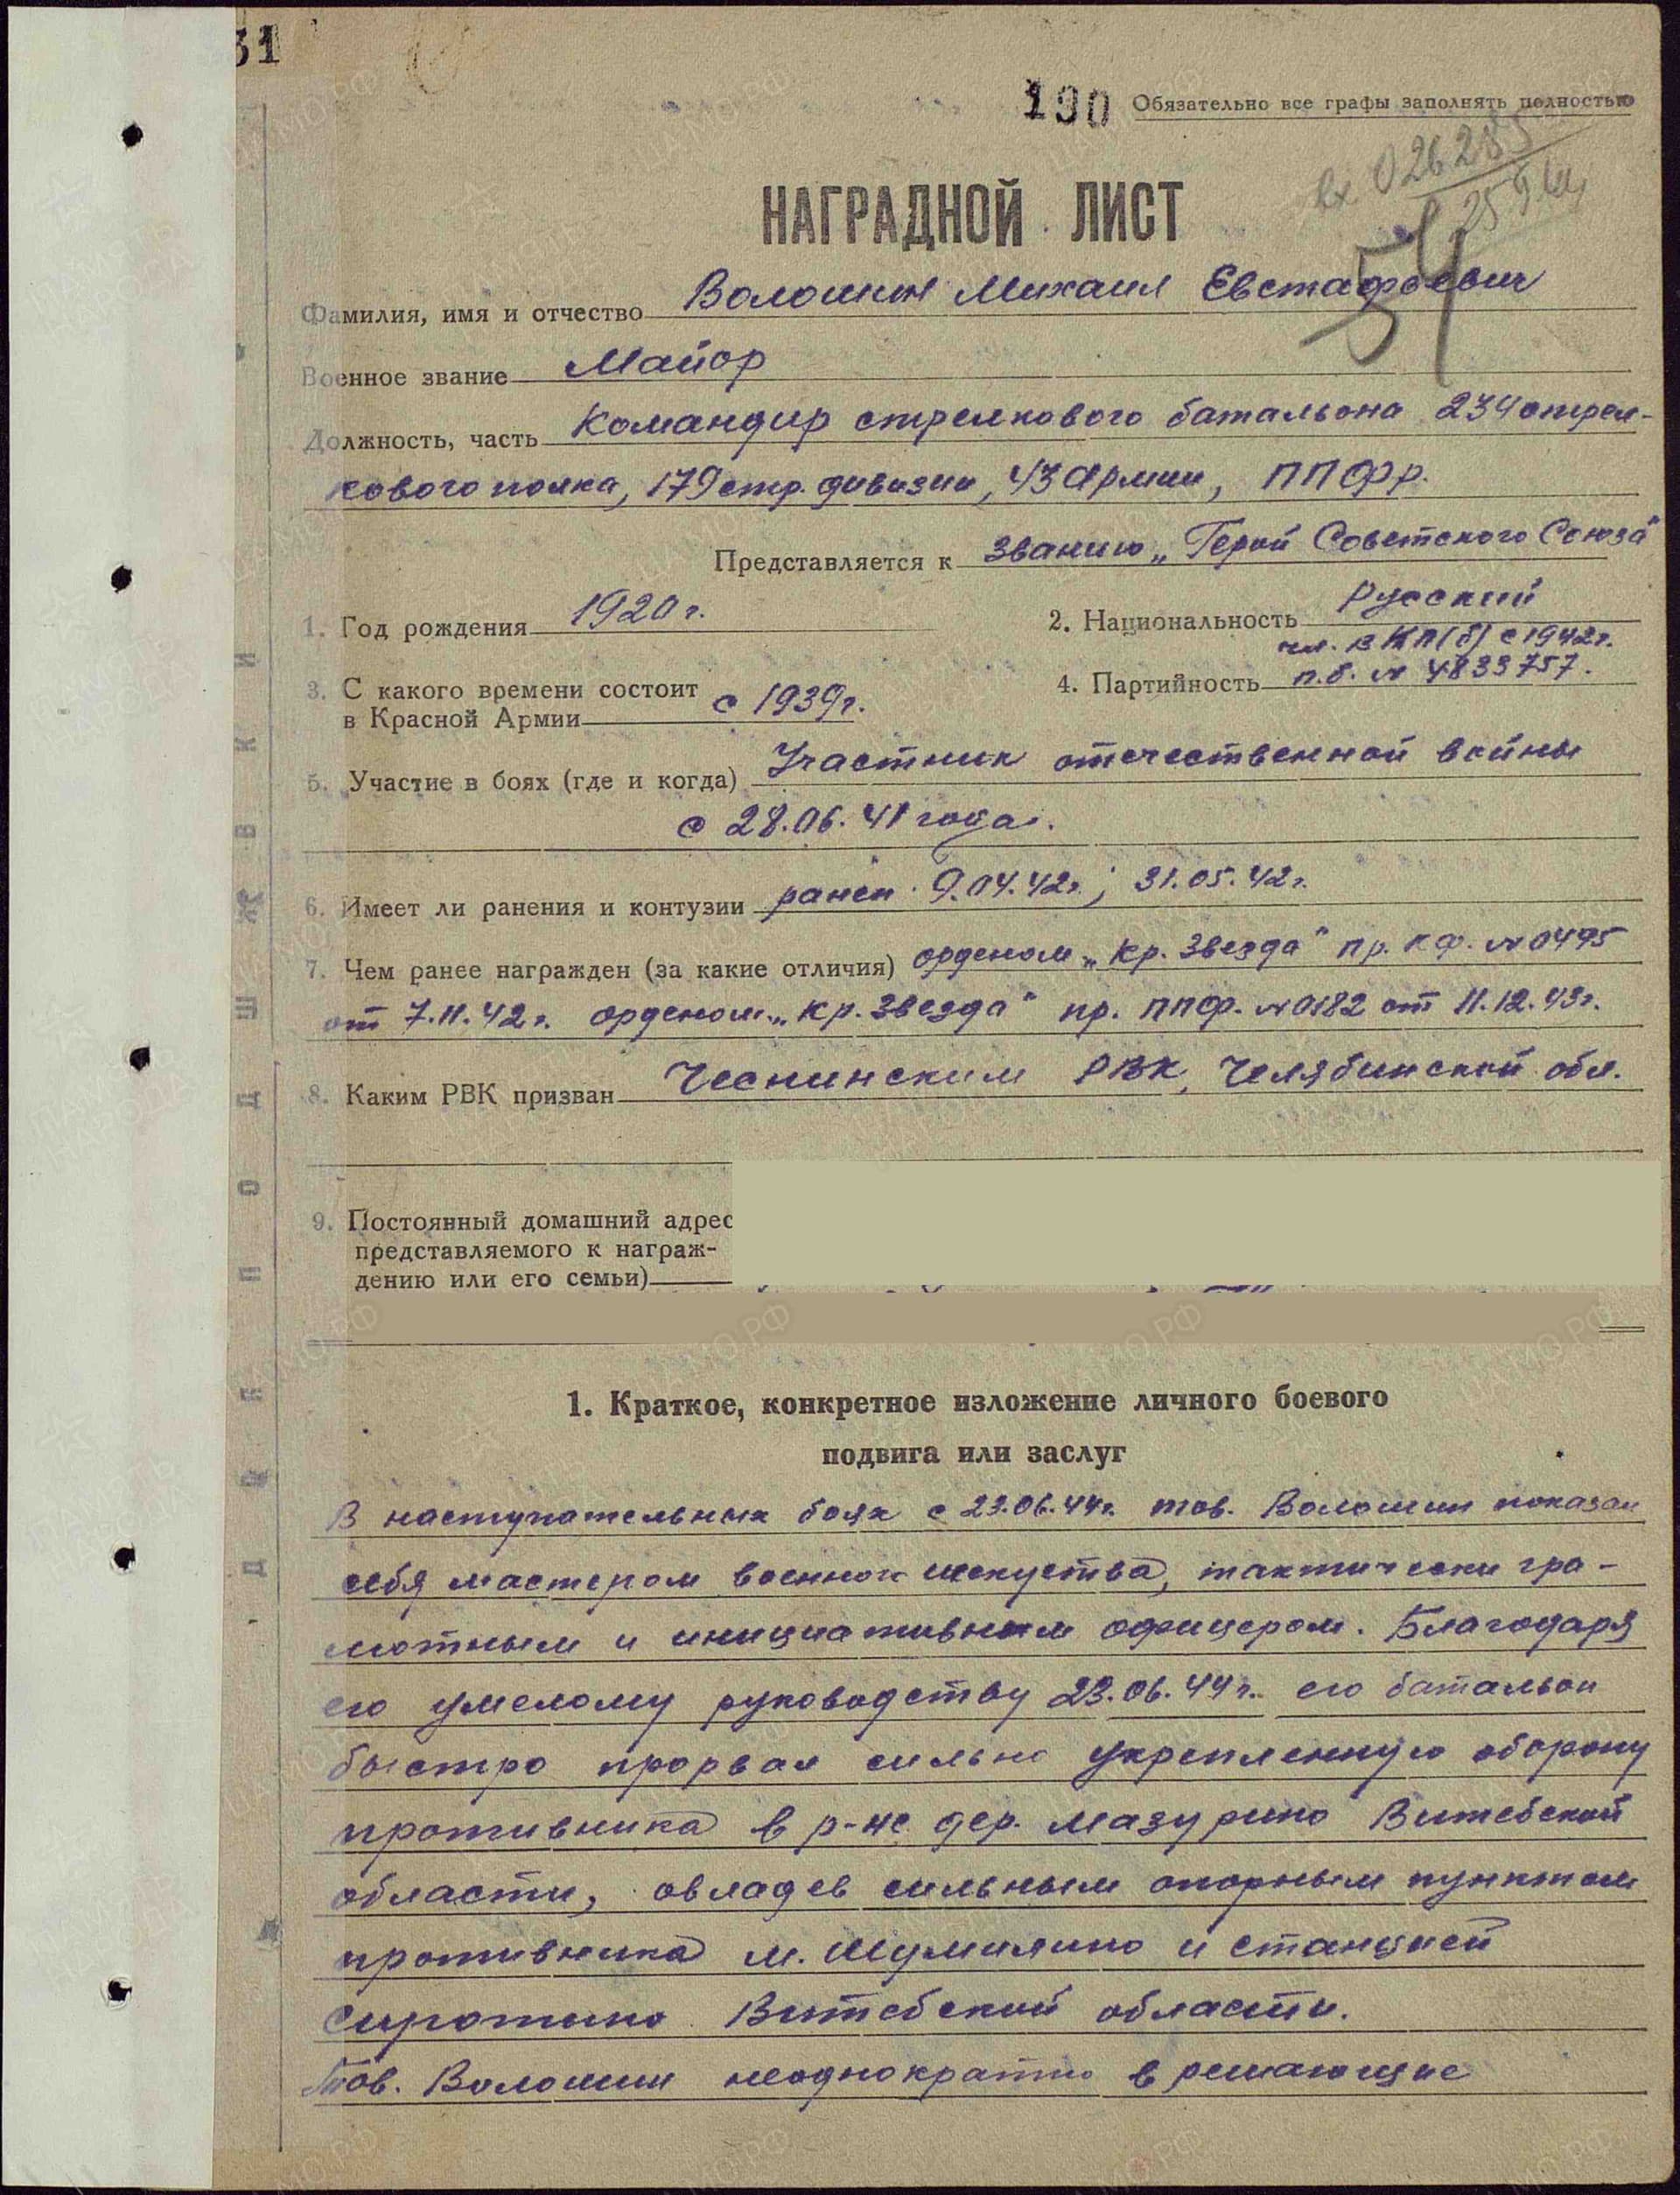 31
190 Обязательно все графы заполнять полностью
вх 026285
25.9.44
54
НАГРАДНОЙ ЛИСТ
Фамилия, имя и отчество Волошин Михаил Евстафьевич
Военное звание Майор
Должность, часть Командир стрелкового батальона 234 стрел-
кового полка, 179 стр. дивизии, 43 Армии, ППФр.
Представляется к званию „Герой Советского Союза"
1. Год рождения 1920 г.
2. Национальность Русский
3. С какого времени состоит
в Красной Армии с 1939г.
чл. ВКП(б) с 1942г.
4. Партийность п.б. № 4833757.
5. Участие в боях (где и когда) Участник отечественной войны
с 28.06.41 года.
6. Имеет ли ранения и контузии ранен 9.04.42г.; 31.05.42г.
7. Чем ранее награжден (за какие отличия) орденом „Кр. Звезда" пр. КФ. №0495
от 7.11.42г. орденом „Кр. Звезда" пр. ППФ. №0182 от 11.12.43г.
8. Каким РВК призван Чесминским РВК, Челябинской обл.
9. Постоянный домашний адрес
представляемого к награж-
дению или его семьи)
1. Краткое, конкретное изложение личного боевого
подвига или заслуг
В наступательных боях с 23.06.44г. тов. Волошин показал
себя мастером военного искуства, тактически гра-
мотным и инициативным офицером. Благодаря
его умелому руководству 23.06.44г. его батальон
быстро прорвал сильно укрепленную оборону
противника в р-не дер. Мазурино Витебской
области, овладев сильным опорным пунктом
противника м. Шумилино и станцией
Сиротино Витебской области.
Тов. Волошин неоднократно в решающие
ДЛЯ ПОДШИВКИ